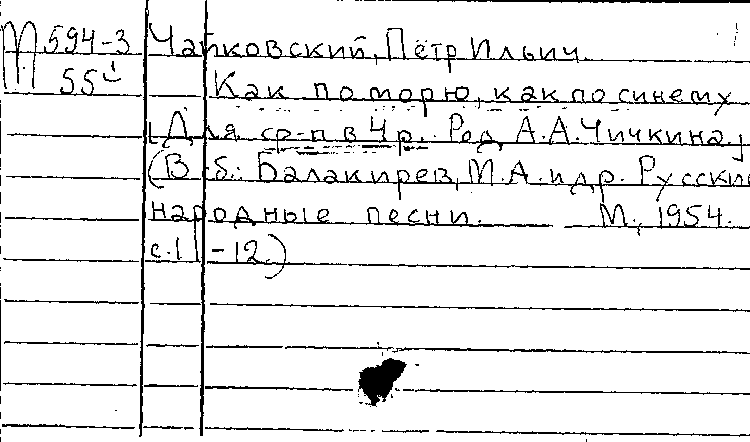 М 594-3 Чайковский, Пётр Ильич.
55 Как по морю, как по синему
[Для ср-п в 4 р. Ред. А.А. Чичкина]
(В сб.: Балакирев, М.А. и др. Русские
народные песни. М., 1954.
с. 11-12.)